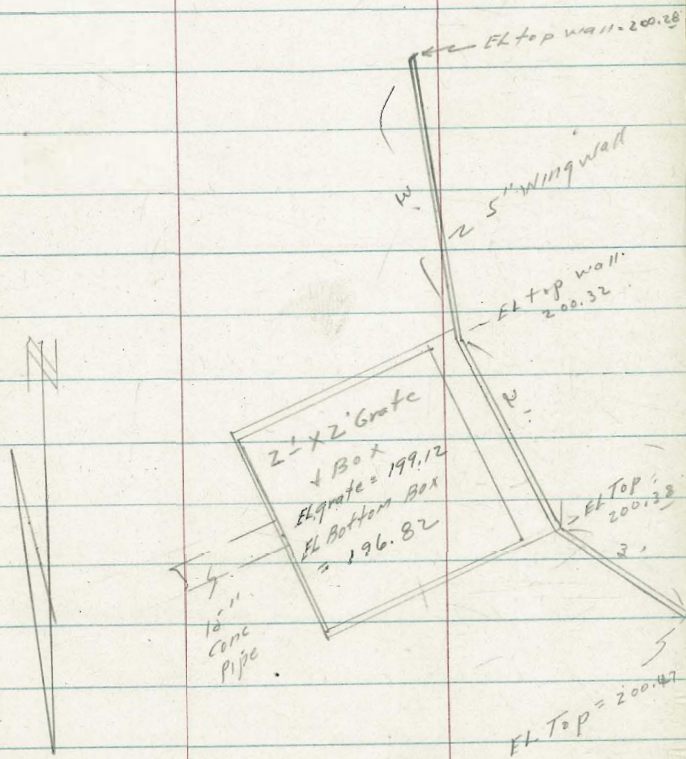 EL top wall = 200.28
3'
5" Wing wall
EL top wall
200.32
N
2'
2' x 2' Grate
+ Box
EL grate = 199.12
EL Bottom Box
= 196.82
EL Top =
200.38
3'
Conc
Pipe
EL Top = 200.47